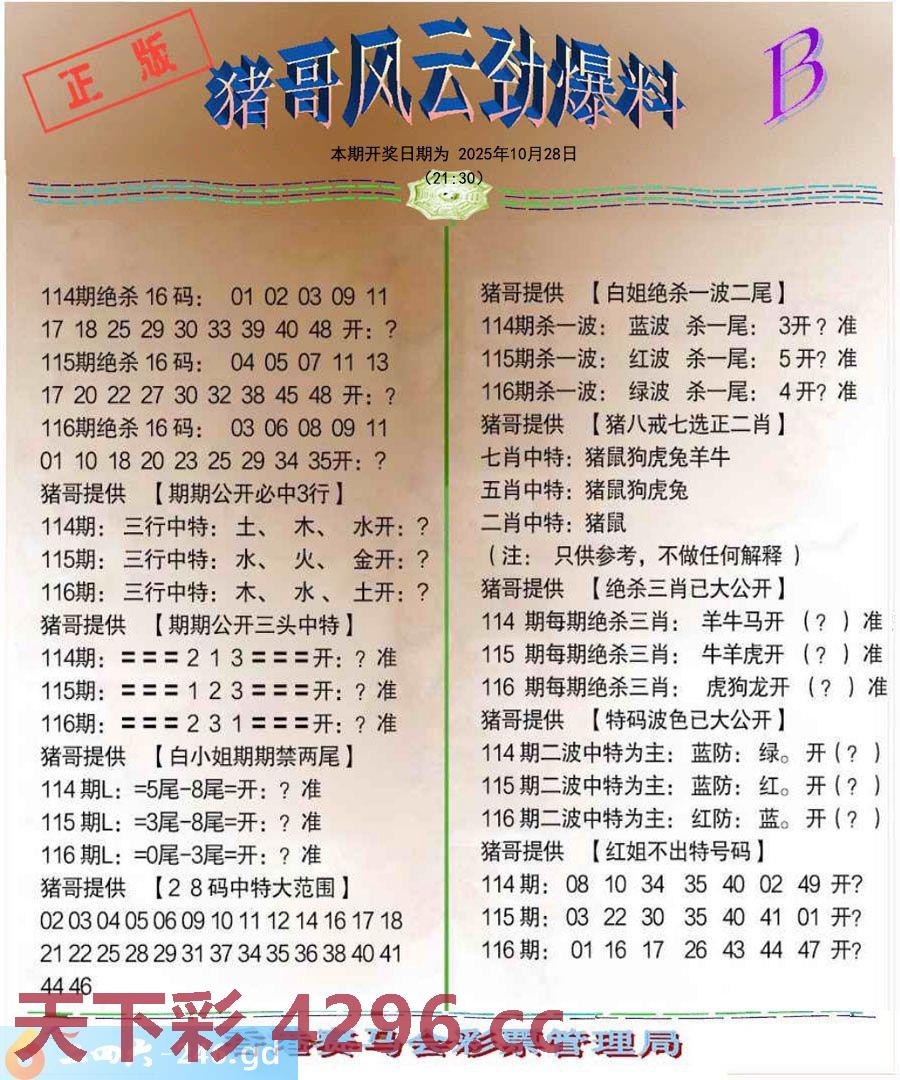 正版
猪哥风云劲爆料
B
本期开奖日期为 2025年10月28日
(21:30)
114期绝杀16码： 01 02 03 09 11
17 18 25 29 30 33 39 40 48 开：?
115期绝杀16码： 04 05 07 11 13
17 20 22 27 30 32 38 45 48 开：?
116期绝杀16码： 03 06 08 09 11
01 10 18 20 23 25 29 34 35开：?
猪哥提供 【期期公开必中3行】
114期：三行中特：土、 木、 水开：?
115期：三行中特：水、 火、 金开：?
116期：三行中特：木、 水 、土开：?
猪哥提供 【期期公开三头中特】
114期：===2 1 3===开：? 准
115期：===1 2 3===开：? 准
116期：===2 3 1===开：? 准
猪哥提供 【白小姐期期禁两尾】
114期L：=5尾-8尾=开：? 准
115期L：=3尾-8尾=开：? 准
116期L：=0尾-3尾=开：? 准
猪哥提供 【28码中特大范围】
02 03 04 05 06 09 10 11 12 14 16 17 18
21 22 25 28 29 31 37 34 35 36 38 40 41
44 46
猪哥提供 【白姐绝杀一波二尾】
114期杀一波： 蓝波 杀一尾： 3开? 准
115期杀一波： 红波 杀一尾： 5开? 准
116期杀一波： 绿波 杀一尾： 4开? 准
猪哥提供 【猪八戒七选正二肖】
七肖中特：猪鼠狗虎兔羊牛
五肖中特：猪鼠狗虎兔
二肖中特：猪鼠
（注： 只供参考，不做任何解释 ）
猪哥提供 【绝杀三肖已大公开】
114 期每期绝杀三肖： 羊牛马开 （? ）准
115 期每期绝杀三肖： 牛羊虎开 （? ）准
116 期每期绝杀三肖： 虎狗龙开 （? ）准
猪哥提供 【特码波色已大公开】
114期二波中特为主：蓝防：绿。开（? ）
115期二波中特为主：蓝防：红。开（? ）
116期二波中特为主：红防：蓝。开（? ）
猪哥提供 【红姐不出特号码】
114期： 08 10 34 35 40 02 49 开?
115期： 03 22 30 35 40 41 01 开?
116期： 01 16 17 26 43 44 47 开?
天下彩 4296.cc
马会彩票管理局